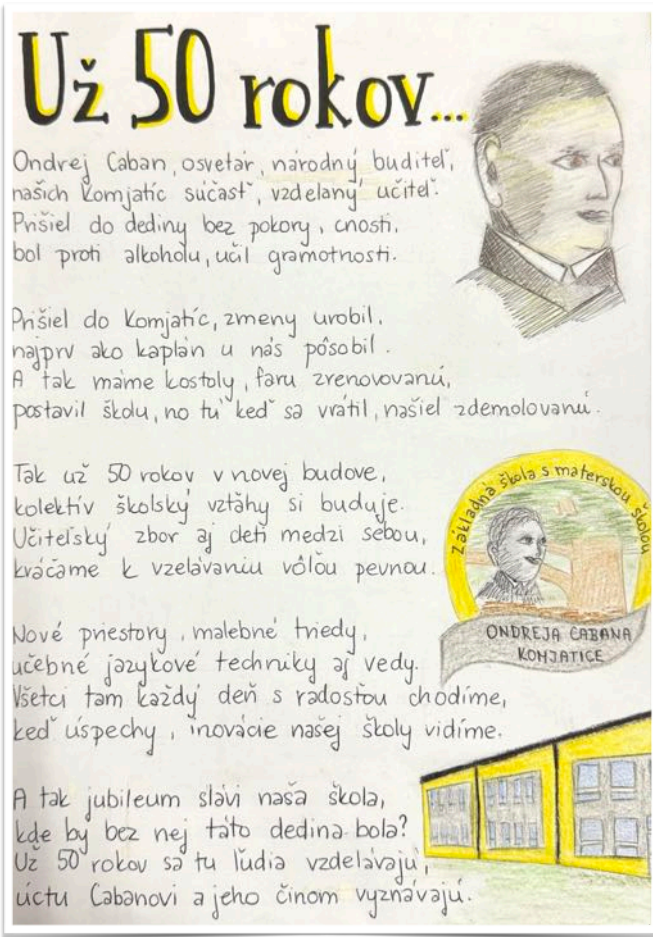 Už 50 rokov...
Ondrej Caban, osvetár, národný buditeľ,
našich Komjatíc súčasť, vzdelaný učiteľ.
Prišiel do dediny bez pokory, cnosti,
bol proti alkoholu, učil gramotnosti.
Prišiel do Komjatíc, zmeny urobil,
najprv ako kaplán u nás pôsobil.
A tak máme kostoly, faru zrenovovanú,
postavil školu, no tú keď sa vrátil, našiel zdemolovanú.
Tak už 50 rokov v novej budove,
kolektív školský vzťahy si buduje.
Učiteľský zbor aj deti medzi sebou,
kráčame k vzelávaniu vôľou pevnou.
Základná škola s materskou školou
ONDREJA CABANA
KOMJATICE
Nové priestory, malebné triedy,
učebné jazykové techniky aj vedy.
Všetci tam každý deň s radosťou chodíme,
keď úspechy, inovácie našej školy vidíme.
A tak jubileum slávi naša škola,
kde by bez nej táto dedina bola?
Už 50 rokov sa tu ľudia vzdelávajú,
úctu Cabanovi a jeho činom vyznávajú.